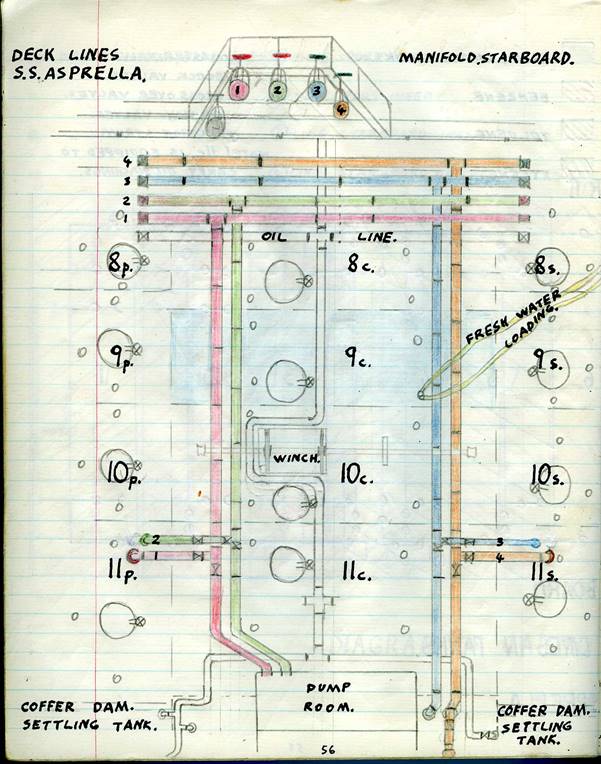 DECK LINES
S.S. ASPRELLA.
MANIFOLD. STARBOARD.
1
2
3
4
4
3
2
1
OIL LINE.
8p.
8c.
8s.
FRESH WATER
LOADING.
9p.
9c.
9s.
WINCH.
10p.
10c.
10s.
2
1
3
4
11p.
11c.
11s.
PUMP
ROOM.
COFFER DAM.
SETTLING TANK.
COFFER DAM.
SETTLING
TANK.
56